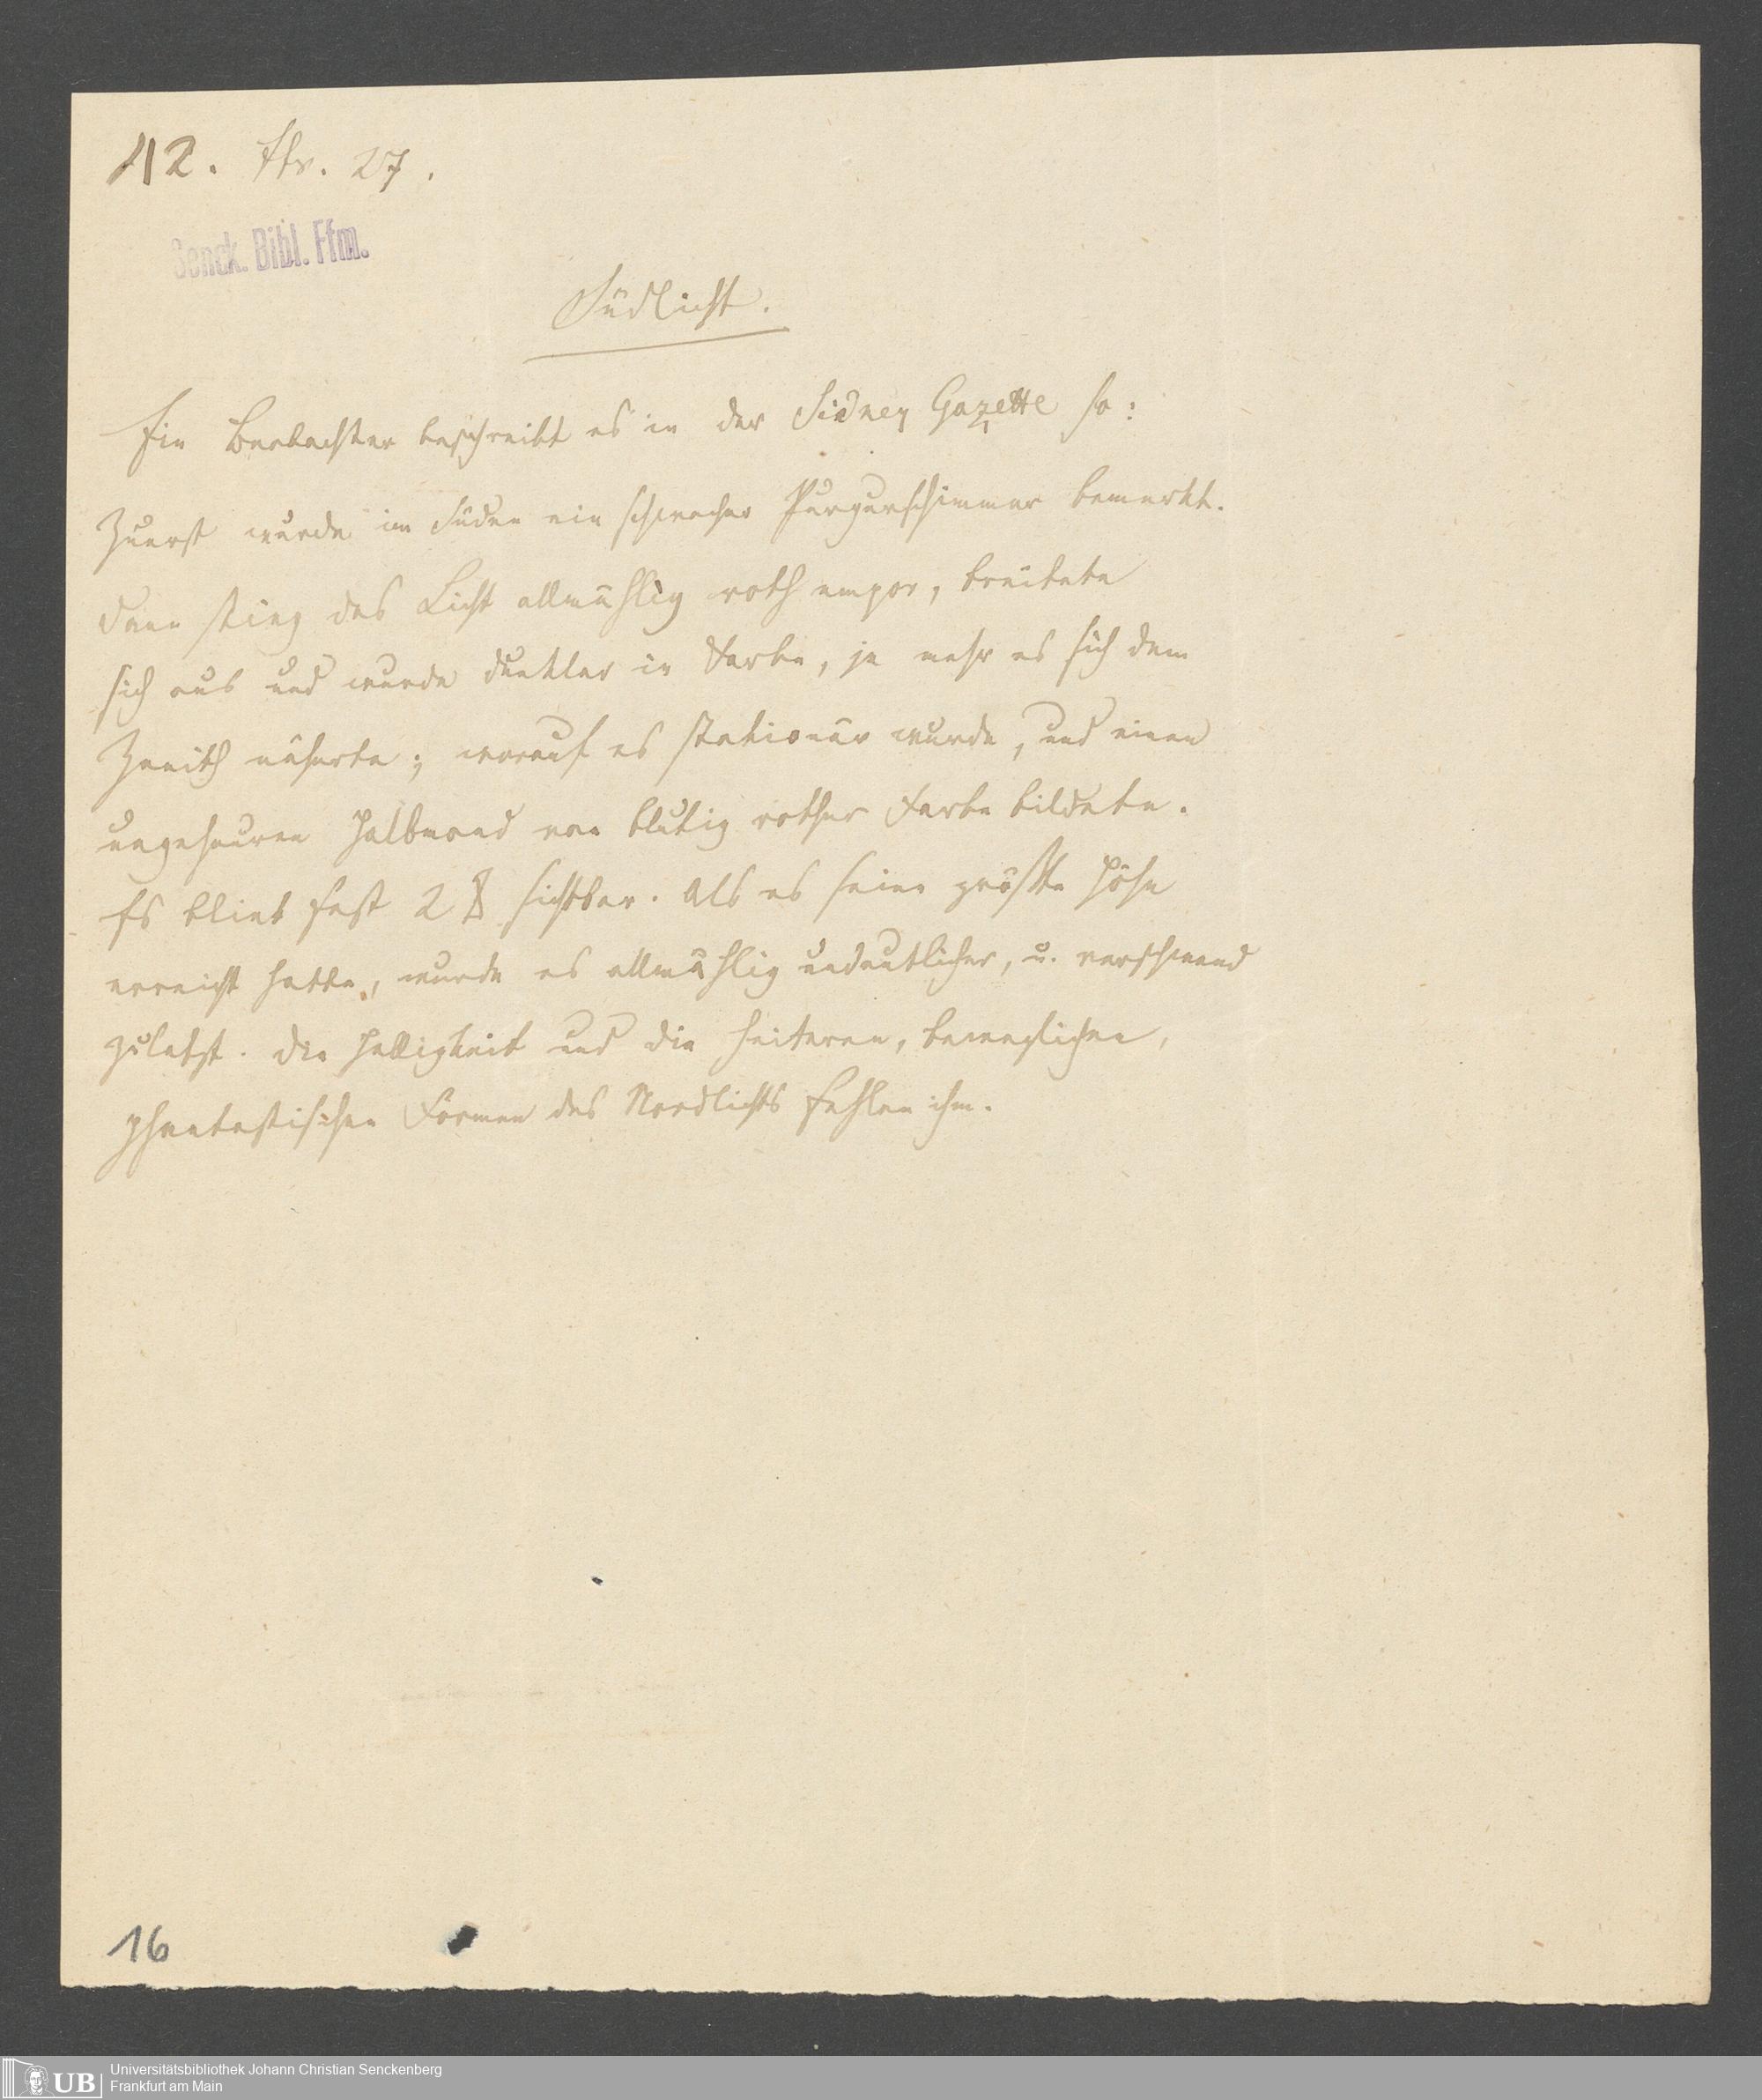 42. 27.
Senck. Bibl. Ffm.
Südlicht.
Ein Beobachter beschreibt es in der Sidney Gazette so:
Zuerst wurde im Süden ein schwacher Purpurschimmer bemerkt.
Dann stieg das Licht allmählig roth empor, breitete
sich aus und wurde dunkler in Farbe, je mehr es sich dem
Zenith näherte; worauf es stationär wurde, und einen
ungeheuren Halbmond von blutig rother Farbe bildete.
Es blieb fast 2 sichtbar. Als es seine größte Höhe
erreicht hatte, wurde es allmählig undeutlicher, u. verschwand
zuletzt. Die Helligkeit und die heiteren, beweglichen,
phantastischen Formen des Nordlichts fehlen ihm.
16
UB
Universitätsbibliothek Johann Christian Senckenberg
Frankfurt am Main